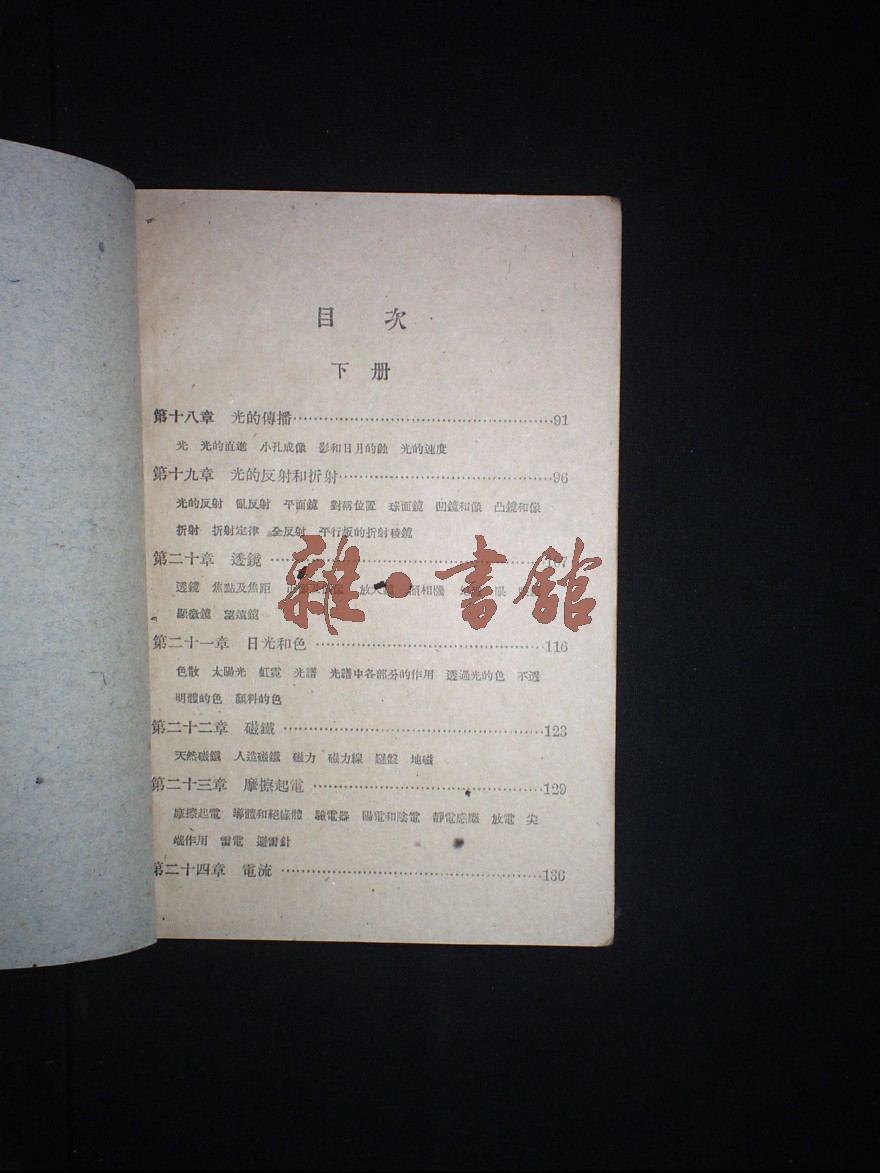 目 次
下 册
第十八章 光的傳播 91
光 光的直進 小孔成像 影和日月的蝕 光的速度
第十九章 光的反射和折射 96
光的反射 亂反射 平面鏡 對稱位置 球面鏡 凹鏡和像 凸鏡和像
折射 折射定律 全反射 平行板的折射稜鏡
第二十章 透鏡
透鏡 焦點及焦距 放大鏡 照相機
顯微鏡 望遠鏡
第二十一章 日光和色 116
色散 太陽光 虹霓 光譜 光譜中各部分的作用 透過光的色 不透
明體的色 顏料的色
第二十二章 磁鐵 123
天然磁鐵 人造磁鐵 磁力 磁力線 羅盤 地磁
第二十三章 摩擦起電 129
摩擦起電 導體和絕緣體 驗電器 陽電和陰電 靜電感應 放電 尖
端作用 雷電 避雷針
第二十四章 電流 136
雜·書館